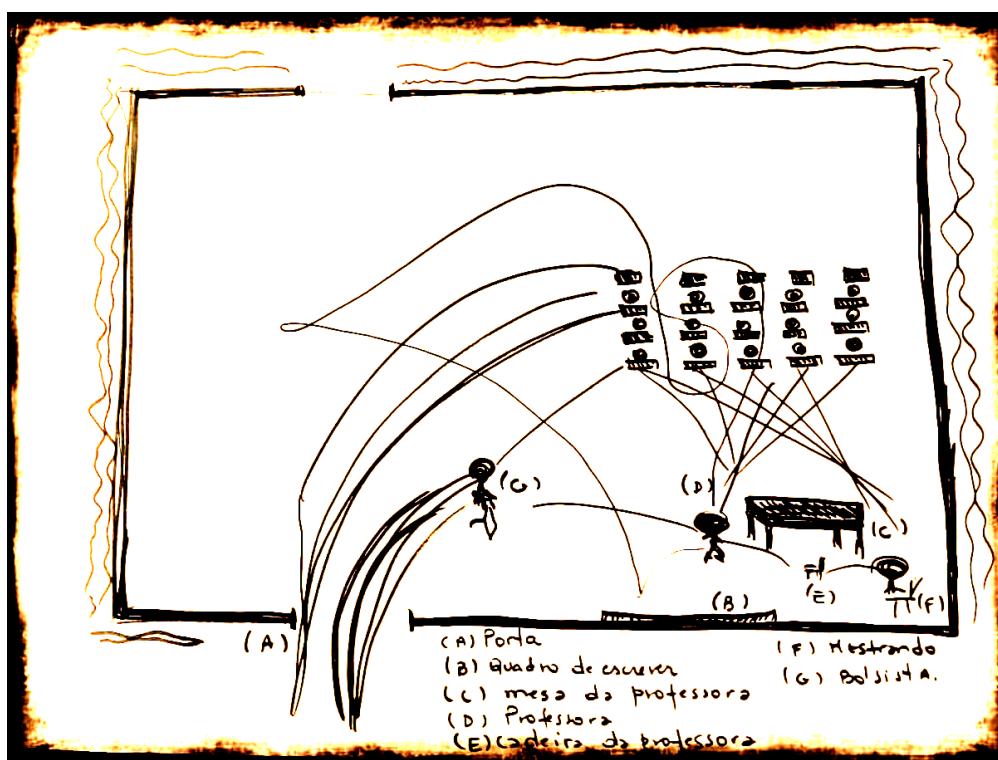 (G)
(D)
(C)
(E)
(B)
(F)
(A)
(A) Porta
(B) Quadro de escrever
(C) mesa da professora
(D) Professora
(E) Cadeira da professora
(F) Mestrando
(G) Bolsista.